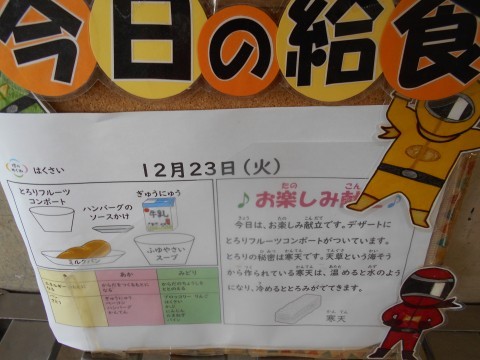 今日の給食
はくさい
12月23日（火）
とろりフルーツ
コンポート
ハンバーグの
ソースかけ
ぎゅうにゅう
牛乳
ミルクパン
ふゆやさい
スープ
あか
みどり
お楽しみ献立
今日は、お楽しみ献立です。デザートに
とろりフルーツコンポートがついています。
とろりの秘密は寒天です。天草という海そう
から作られている寒天は、温めると水のよう
になり、冷めるととろみがでてきます。
寒天